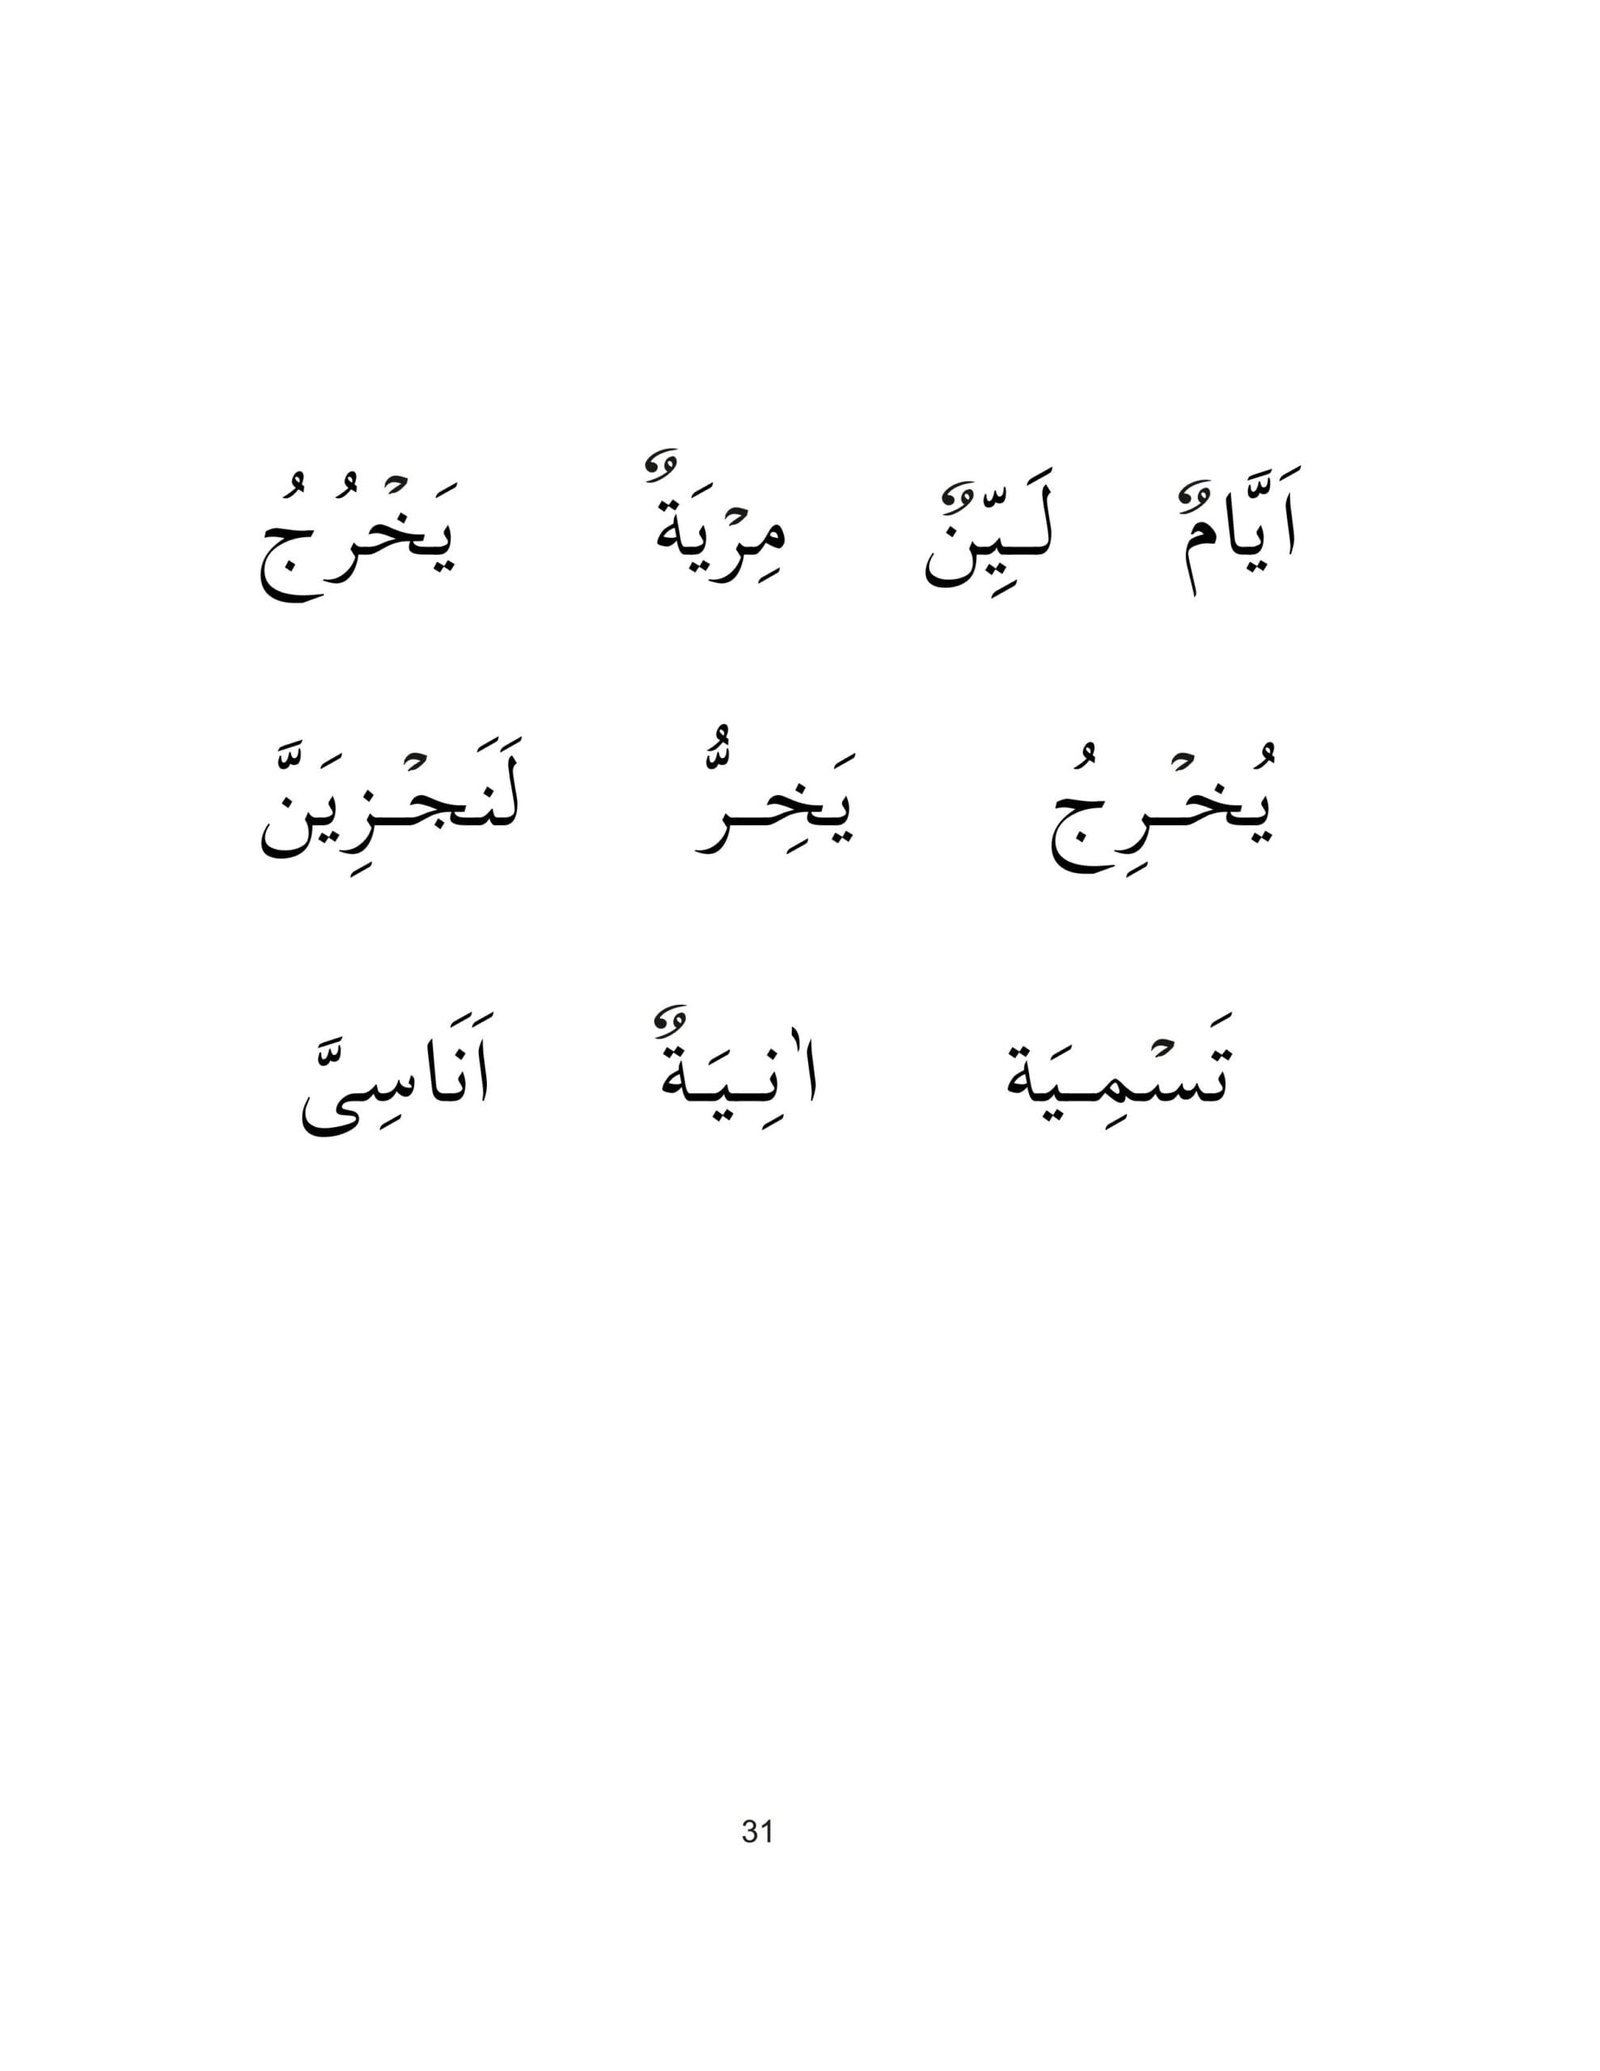 اَيَّامٌ لَـيِّنٌ مِرْيَةٌ يَخْرُجُ
يُخْـرِجُ يَخِـرُّ لَنَجْـزِيَنَّ
تَسْمِـيَة اٰنِـيَةٌ اَنَاسِىَّ
31